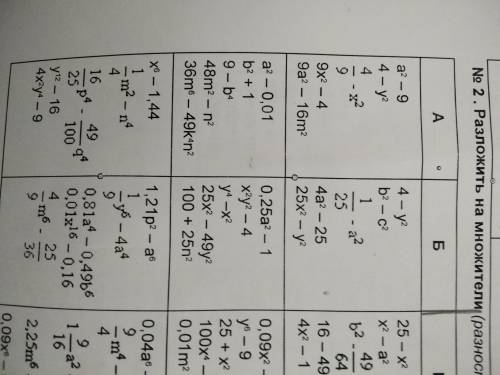 № 2 . Разложить на множители (разнос
А
Б
a² – 9
4 – y²
4/9 - x²
9x² – 4
9a² – 16m²
4 – y²
b² – c²
1/25 - a²
4a² – 25
25x² – y²
25 – x²
x² – a²
b² - 49/64
16 – 49
4x² – 1
a² – 0,01
b² + 1
9 – b⁴
48m² – n²
36m⁶ – 49k⁴n²
0,25a² – 1
x²y² – 4
y⁴ – x²
25x² – 49y²
100 + 25n²
0,09x² –
y⁶ – 9
25 + x²
100x⁴ –
0,01m²
x⁶ – 1,44
1/4 m² – n⁴
16/25 p⁴ - 49/100 q⁴
y¹² – 16
4x²y⁴ – 9
1,21p² – a⁶
1/9 y⁶ – 4a⁴
0,81a⁴ – 0,49b⁶
0,01x¹⁶ – 0,16
4/9 m⁶ - 25/36
0,04a⁶ –
9/4 m⁴ –
1 9/16 a²
2,25m⁶
0,09x⁸ –